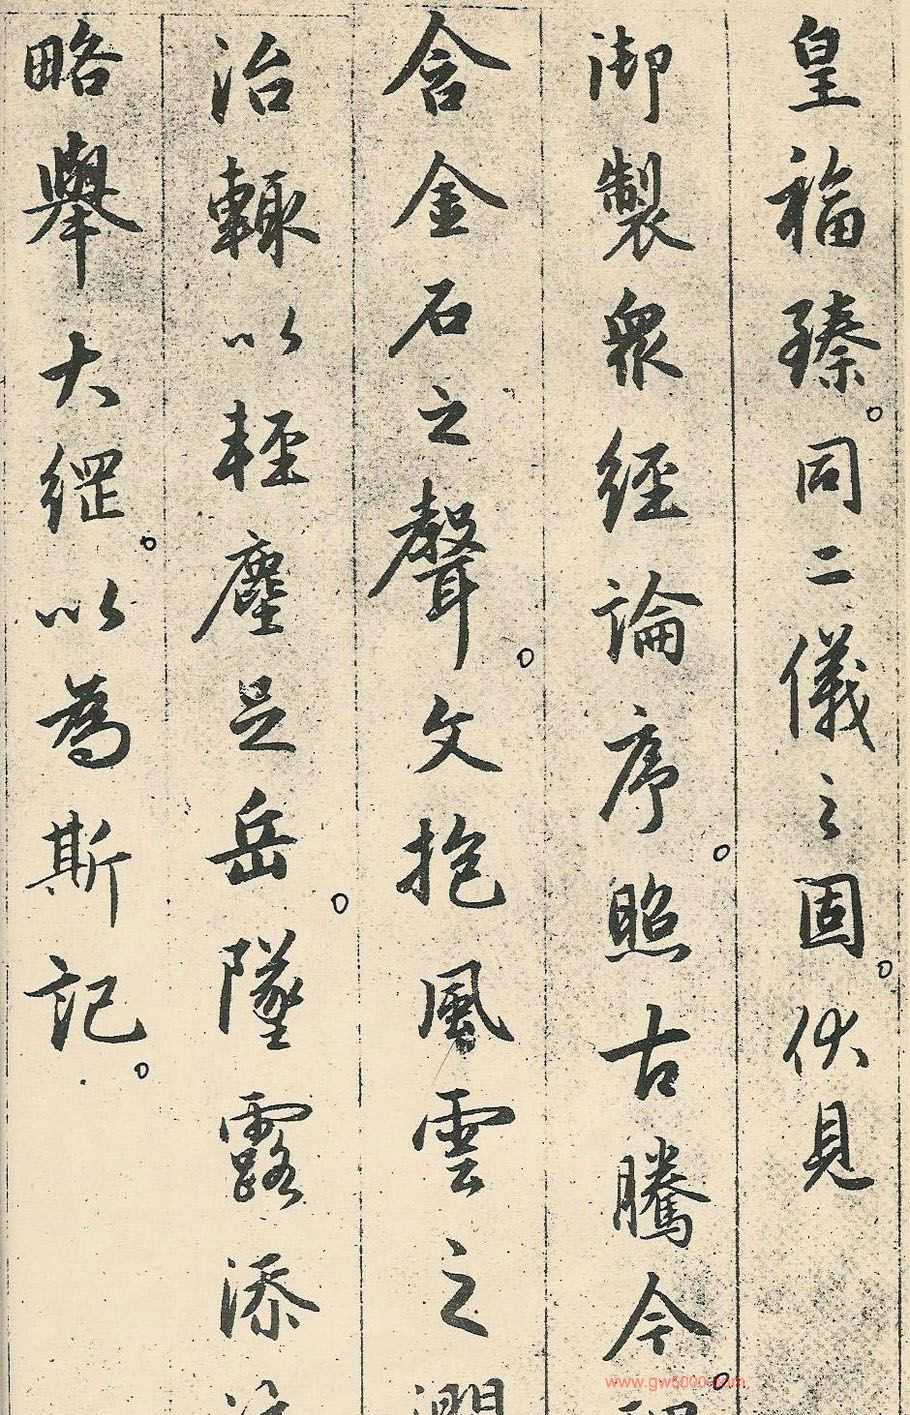 皇福臻。同二儀之固。伏見
御製衆經論序。照古騰今。
含金石之聲。文抱風雲之
治輒以輕塵足岳。墜露添
略舉大綱。以為斯記。
www.gw5000.com